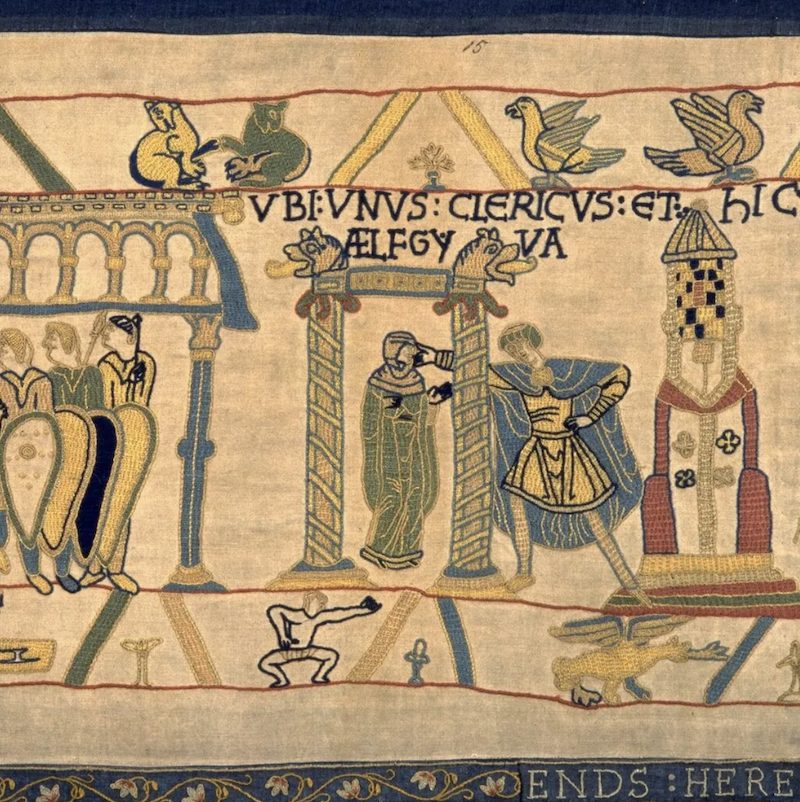 15
VBI:VNVS:CLERICVS:ET: hIC
ÆLFGY VA
ENDS:HERE